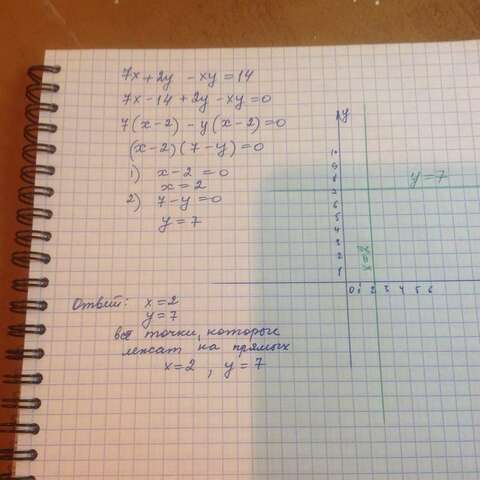 7x+2y -xy=14
7x-14+2y-xy=0
7(x-2)-y(x-2)=0
(x-2)(7-y)=0
1) x-2=0
x=2
2) 7-y=0
y=7
Ответ: x=2
y=7
все точки, которые
лежат на прямых
x=2, y=7
y
10
9
8
7
6
5
4
3
2
1
0 1 2 3 4 5 6
y=7
x=2